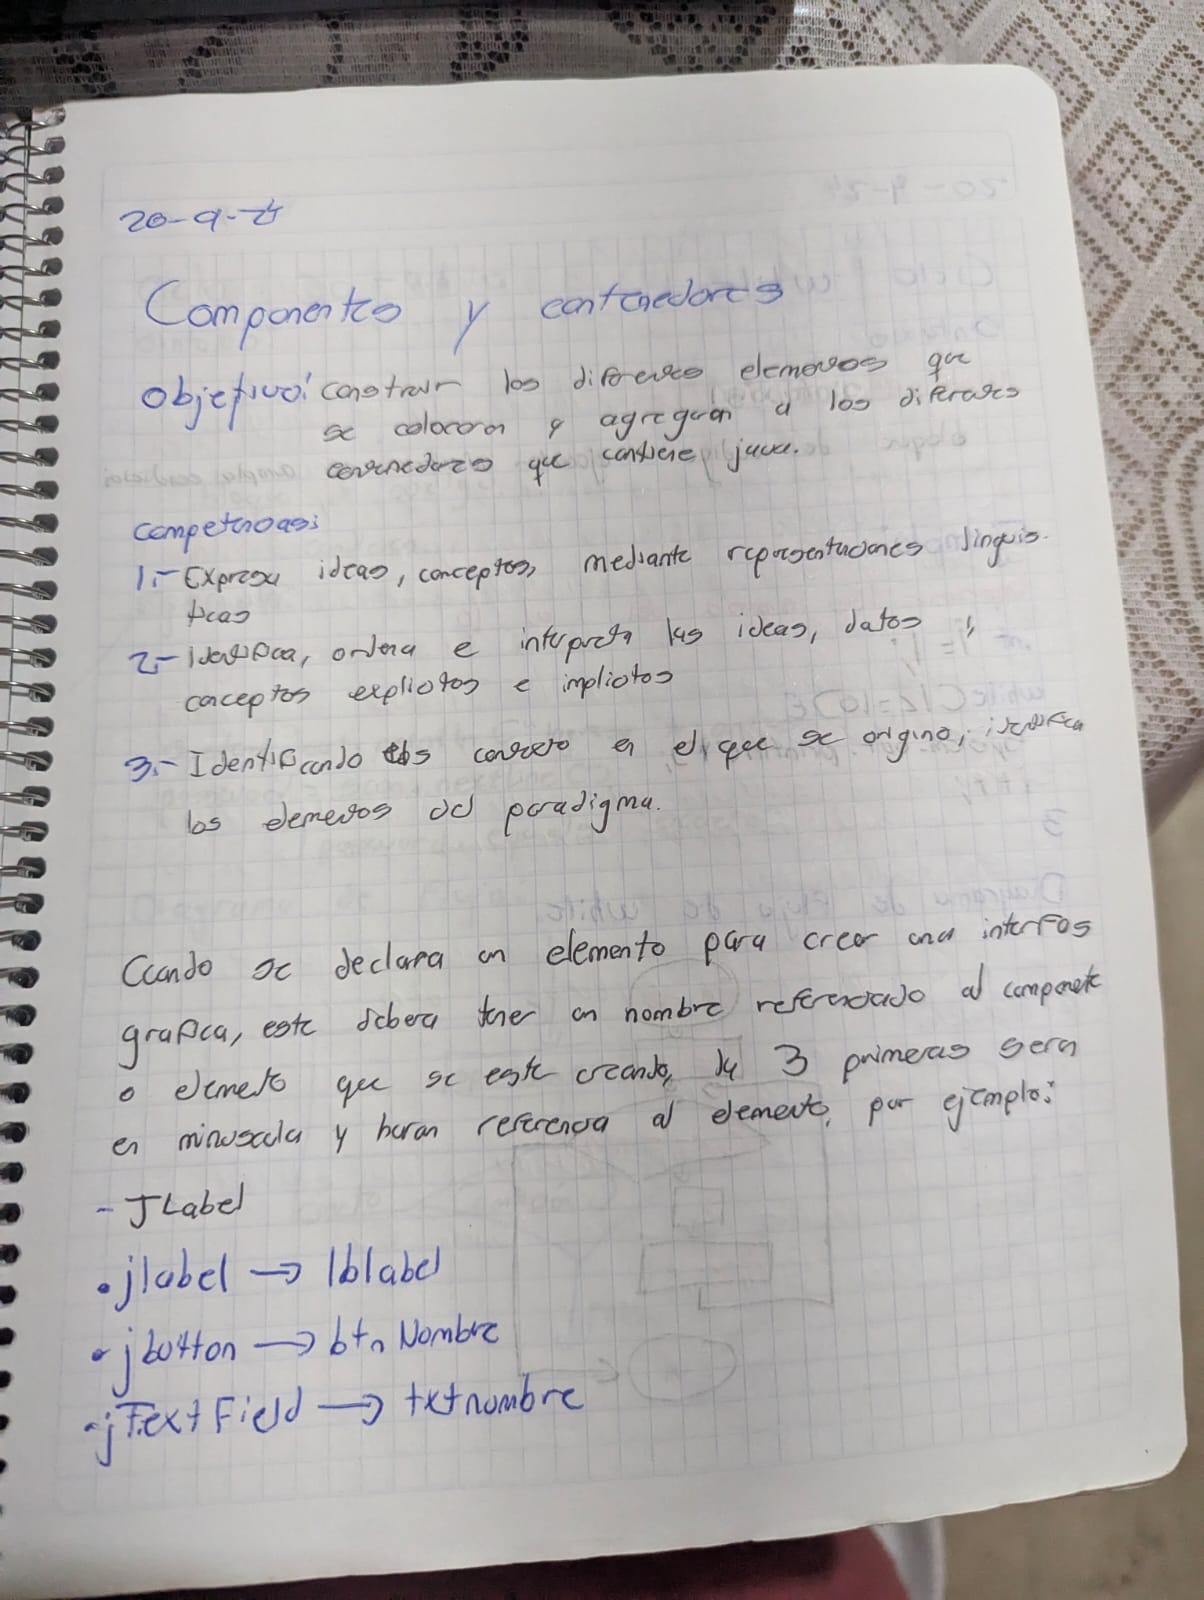 20-9-24
Componentes y contenedores
Objetivo: construir los diferentes elementos que
se colocaran y agregaran a los diferentes
contenedores que contiene java.
competencias:
1.- Expresa ideas, conceptos, mediante representaciones linguis-
ticas
2.- identifica, ordena e interpreta las ideas, datos y
conceptos explicitos e implicitos
3.- Identificando el contexto en el que se origino, identifica
los elementos del paradigma.
Cuando se declara un elemento para crear una interfas
grafica, este debera tener un nombre referenciado al componente
o elemento que se este creando, la 3 primeras seran
en minuscula y haran referencia al elemento, por ejemplo:
- JLabel
• jlabel → lblabel
• jbutton → btn Nombre
- jTextField → txtnombre